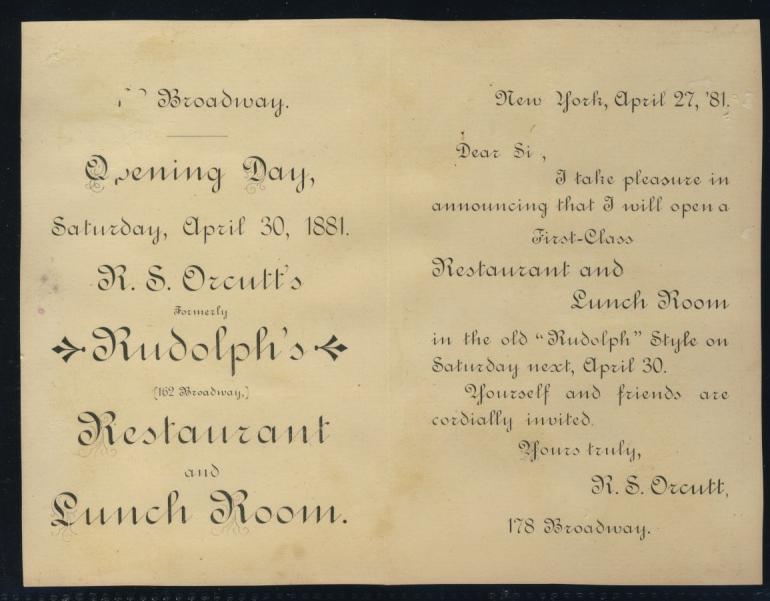 Broadway.
Opening Day,
Saturday, April 30, 1881.
R. S. Orcutt's
Formerly
Rudolph's
(162 Broadway,)
Restaurant
and
Lunch Room.
New York, April 27, '81.
Dear Si ,
I take pleasure in
announcing that I will open a
First-Class
Restaurant and
Lunch Room
in the old "Rudolph" Style on
Saturday next, April 30.
Yourself and friends are
cordially invited.
Yours truly,
R. S. Orcutt,
178 Broadway.